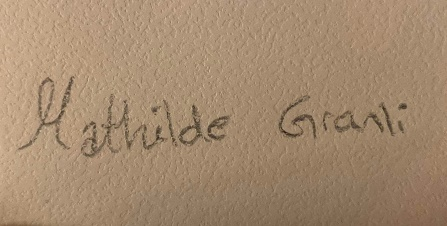 Mathilde Granli